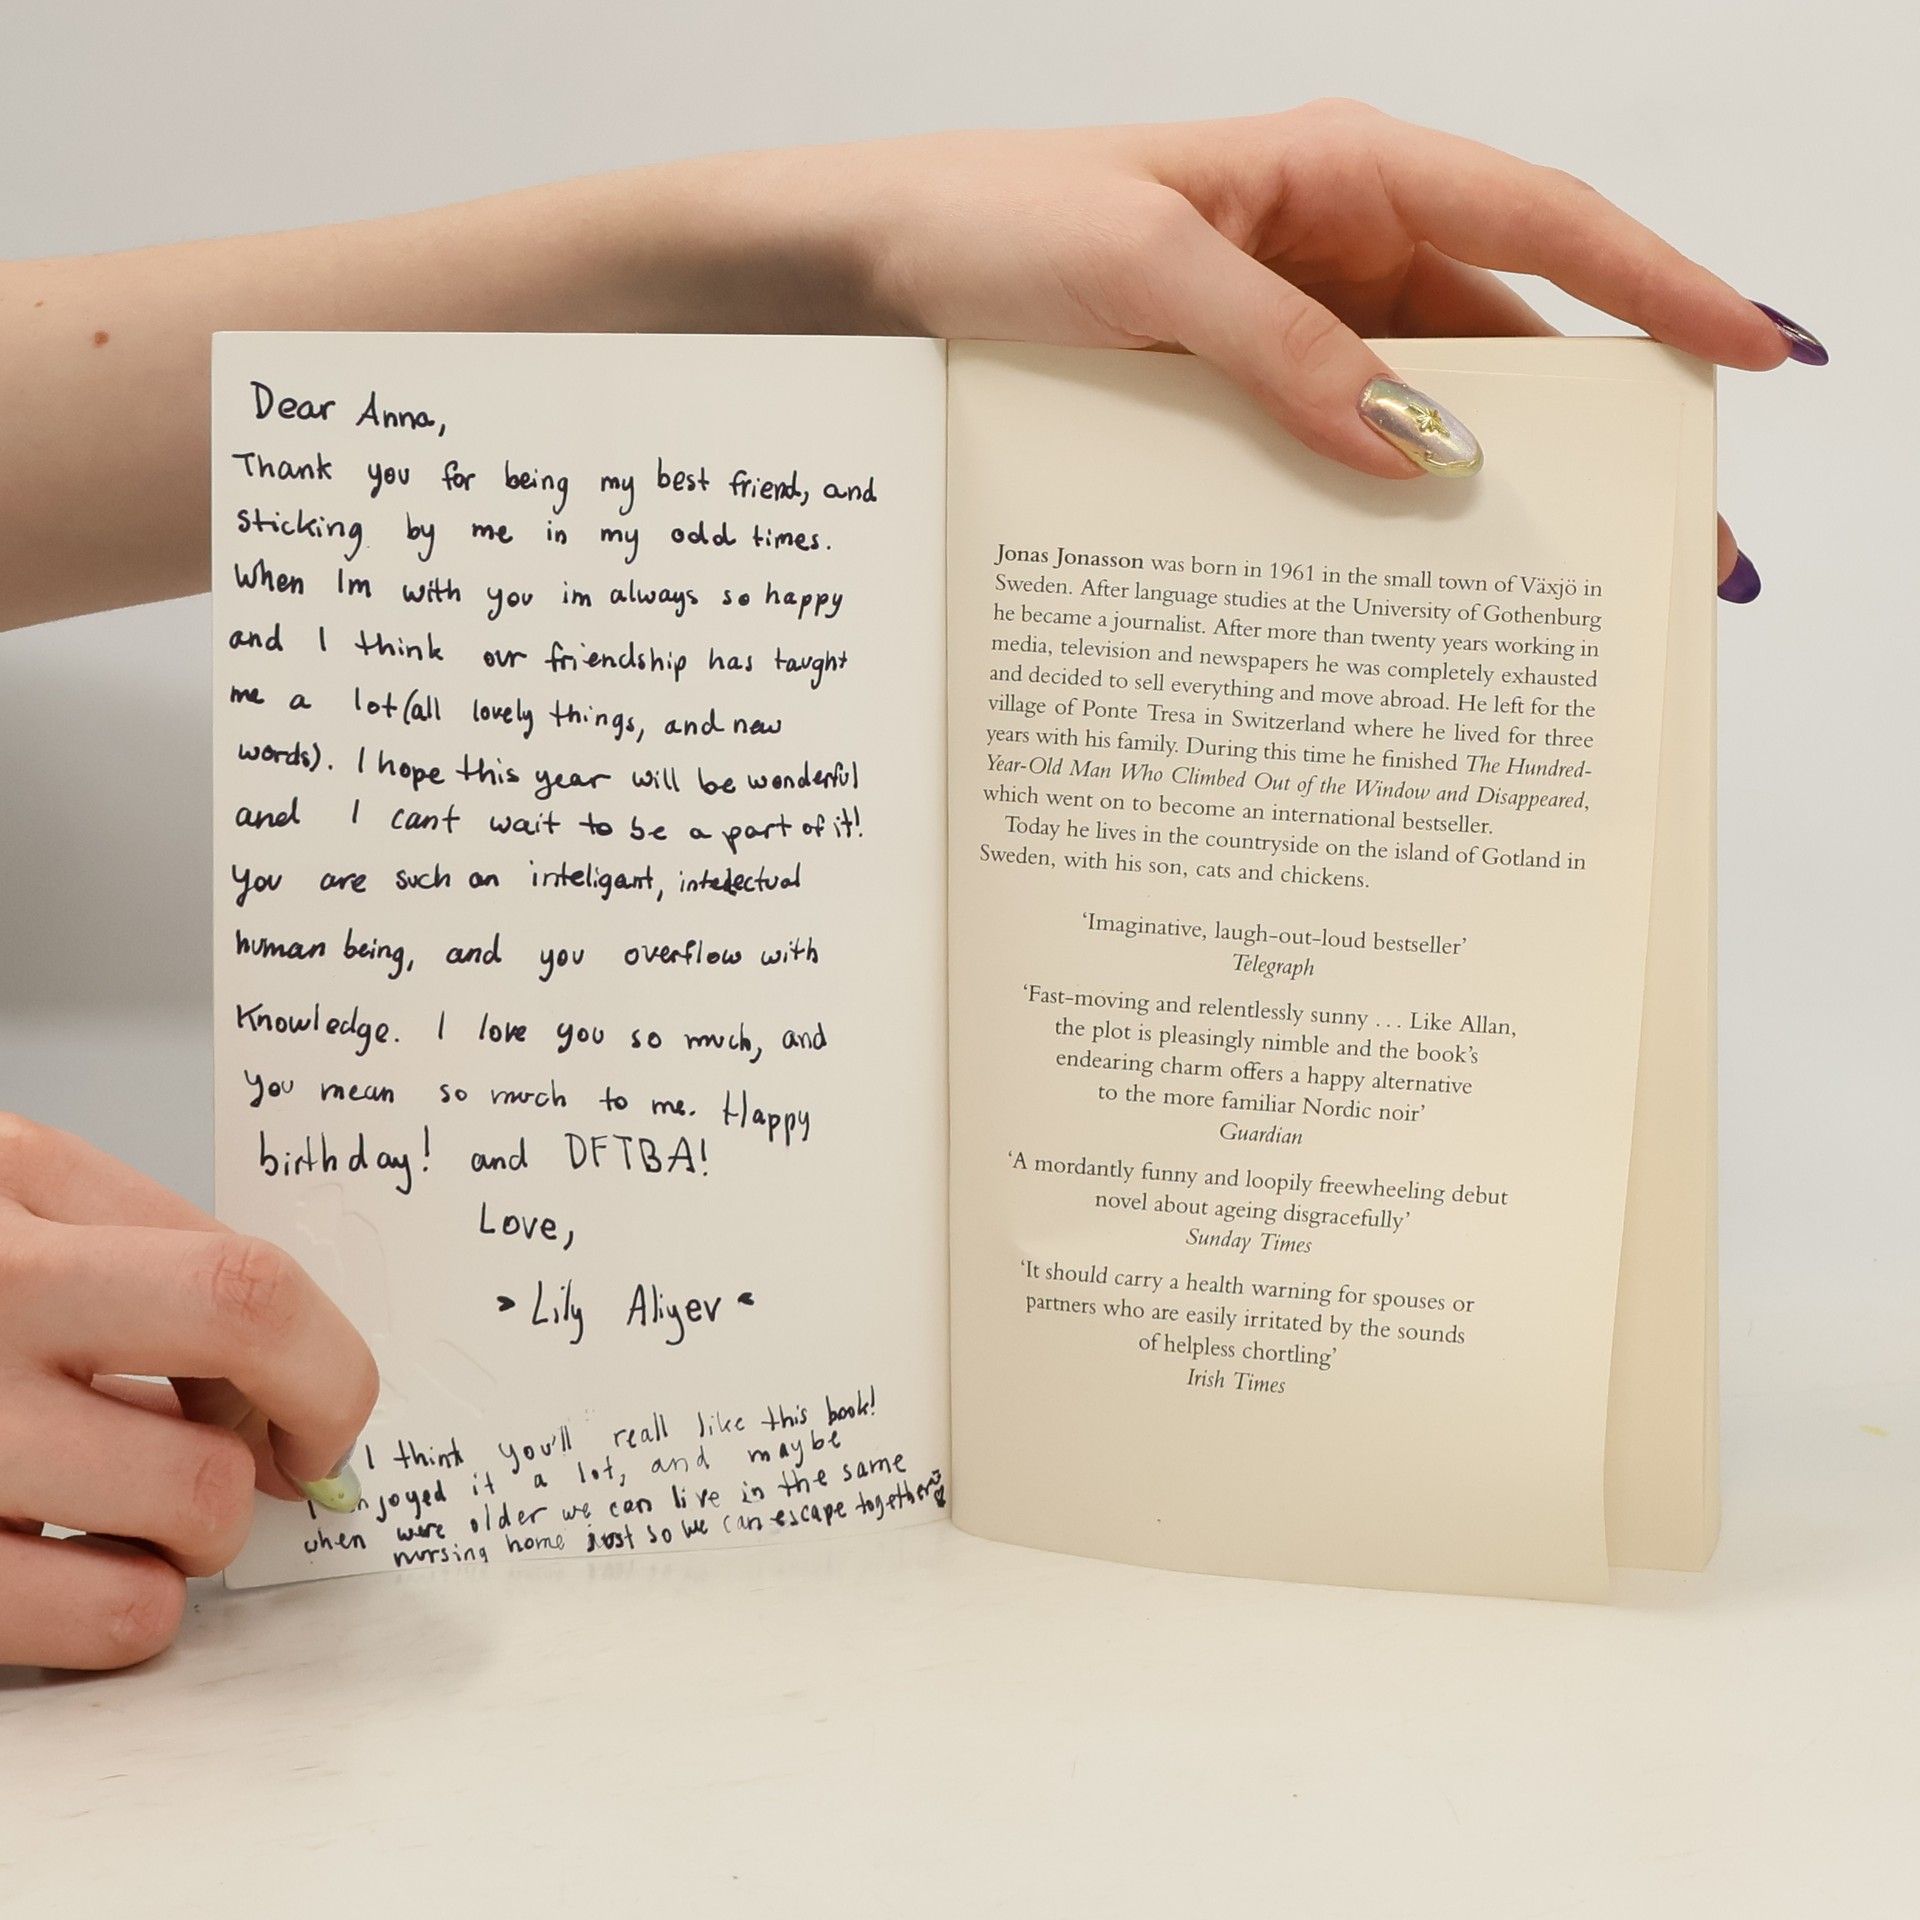 Dear Anna,
Thank you for being my best friend, and
sticking by me in my odd times.
When Im with you im always so happy
and I think our friendship has taught
me a lot (all lovely things, and new
words). I hope this year will be wonderful
and I cant wait to be a part of it!
You are such an inteligant, intelectual
human being, and you overflow with
Knowledge. I love you so much, and
you mean so much to me. Happy
birthday! and DFTBA!
Love,
Lily Aliyev
I think you'll reall like this book!
I enjoyed it a lot, and maybe
when were older we can live in the same
nursing home just so we can escape together
Jonas Jonasson was born in 1961 in the small town of Växjö in
Sweden. After language studies at the University of Gothenburg
he became a journalist. After more than twenty years working in
media, television and newspapers he was completely exhausted
and decided to sell everything and move abroad. He left for the
village of Ponte Tresa in Switzerland where he lived for three
years with his family. During this time he finished The Hundred-
Year-Old Man Who Climbed Out of the Window and Disappeared,
which went on to become an international bestseller.
Today he lives in the countryside on the island of Gotland in
Sweden, with his son, cats and chickens.
‘Imaginative, laugh-out-loud bestseller’
Telegraph
‘Fast-moving and relentlessly sunny ... Like Allan,
the plot is pleasingly nimble and the book’s
endearing charm offers a happy alternative
to the more familiar Nordic noir’
Guardian
‘A mordantly funny and loopily freewheeling debut
novel about ageing disgracefully’
Sunday Times
‘It should carry a health warning for spouses or
partners who are easily irritated by the sounds
of helpless chortling’
Irish Times